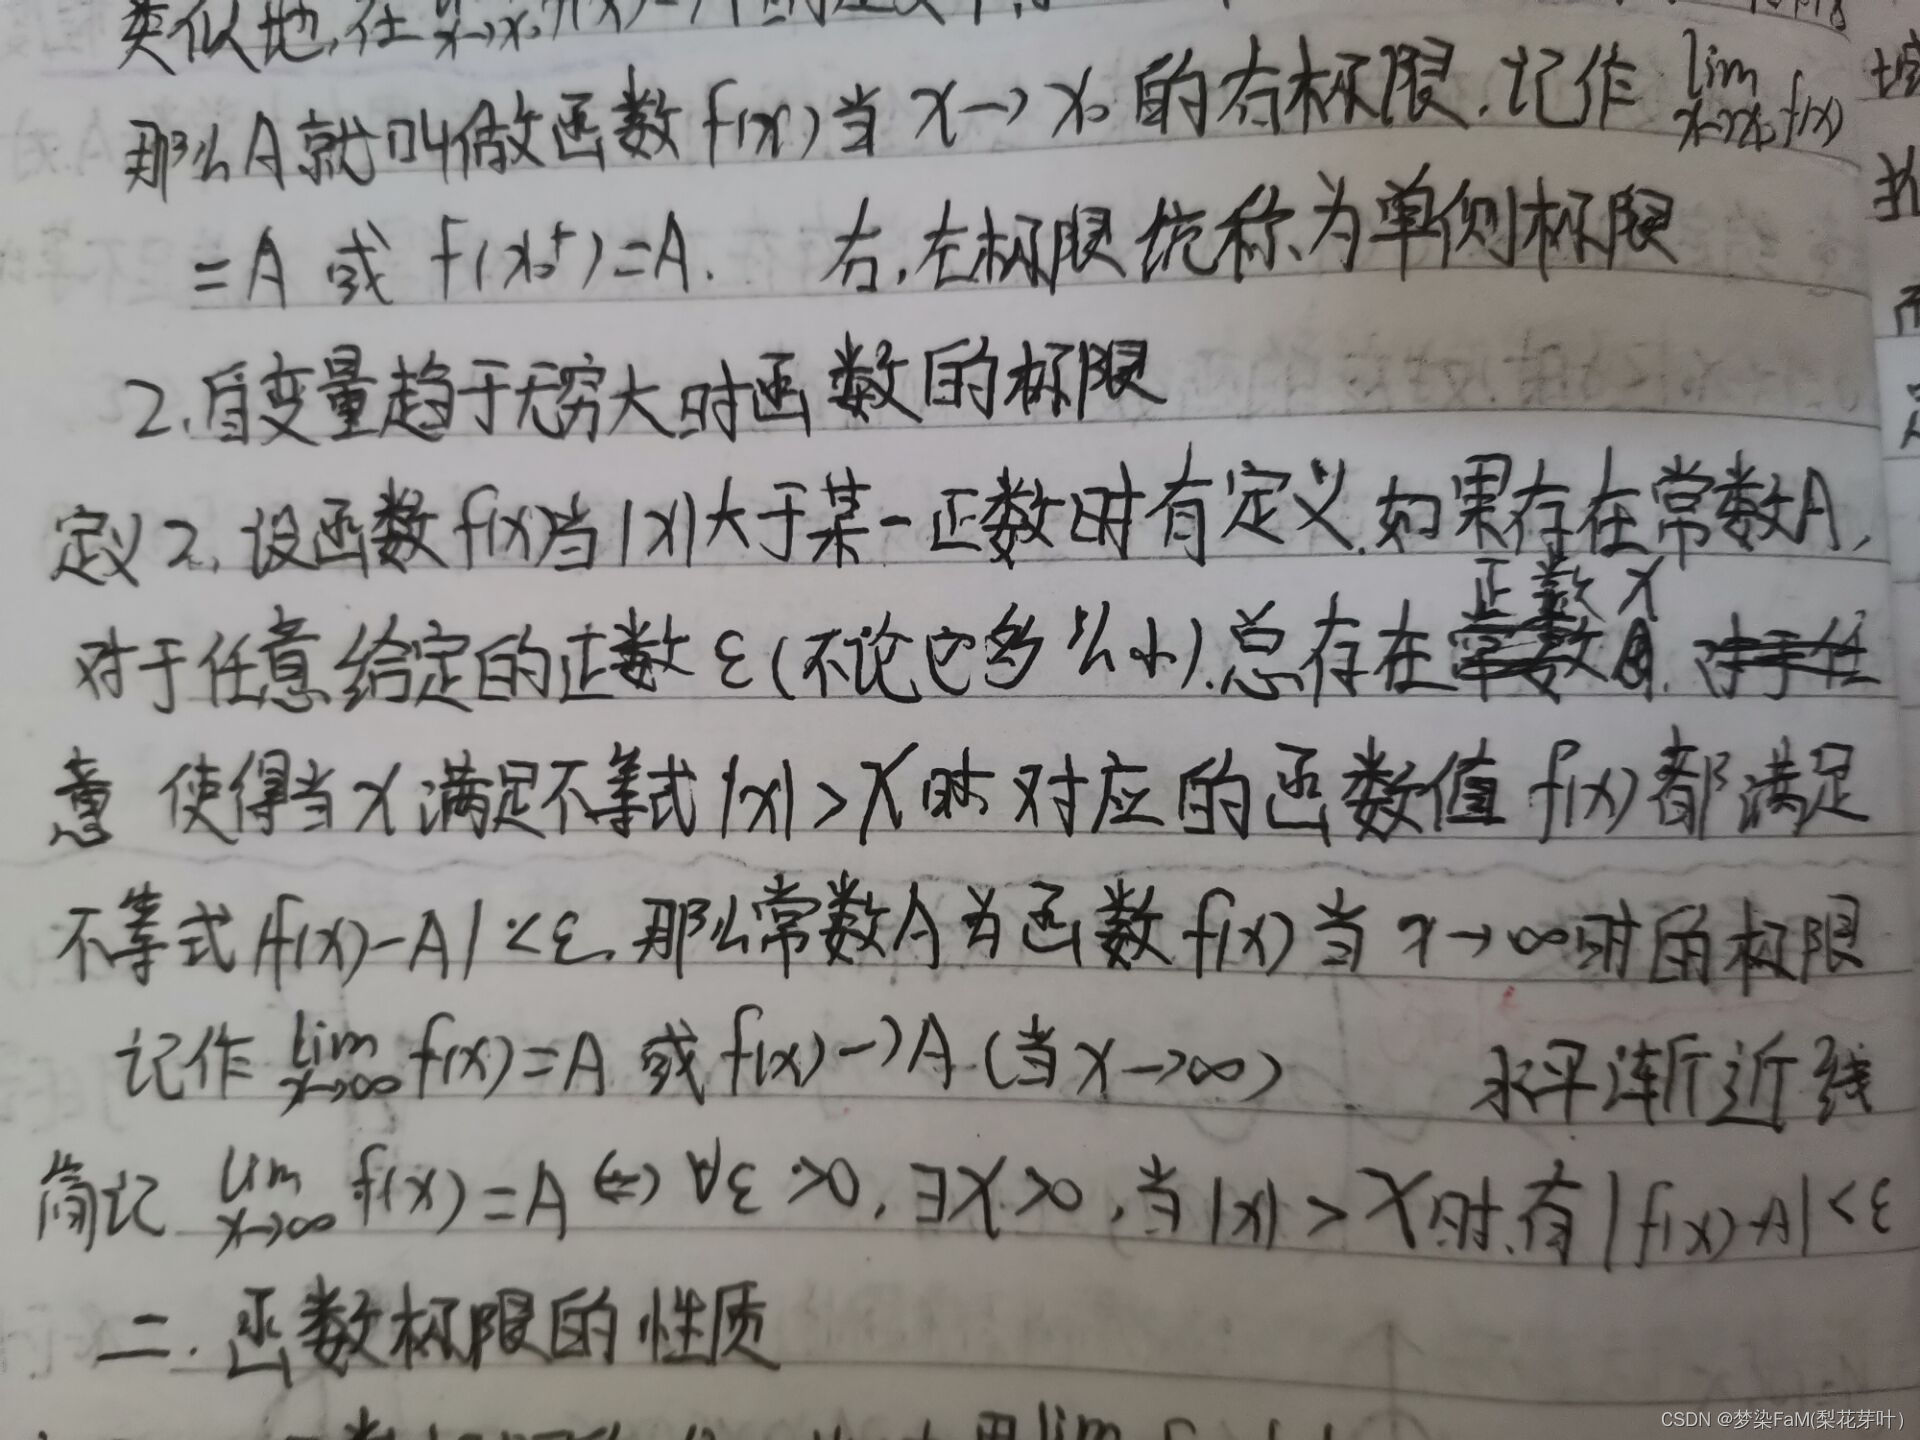 类似地,在
那么A就叫做函数f(x)当x→x₀的右极限.记作 lim x→x₀⁺ f(x)
=A 或 f(x₀⁺)=A. 右,左极限统称为单侧极限
2.自变量趋于无穷大时函数的极限
定义2.设函数f(x)当|x|大于某一正数时有定义.如果存在常数A,
正数X
对于任意给定的正数ε(不论它多么小).总存在常数A.对于任
意 使得当x满足不等式|x|>X时.对应的函数值f(x)都满足
不等式|f(x)-A|<ε.那么常数A为函数f(x)当x→∞时的极限
记作 lim x→∞ f(x)=A 或f(x)→A(当x→∞) 水平渐近线
简记 lim x→∞ f(x)=A⇔∀ε>0,∃X>0,当|x|>X时.有|f(x)-A|<ε
二.函数极限的性质
CSDN @梦染FaM(梨花芽叶)